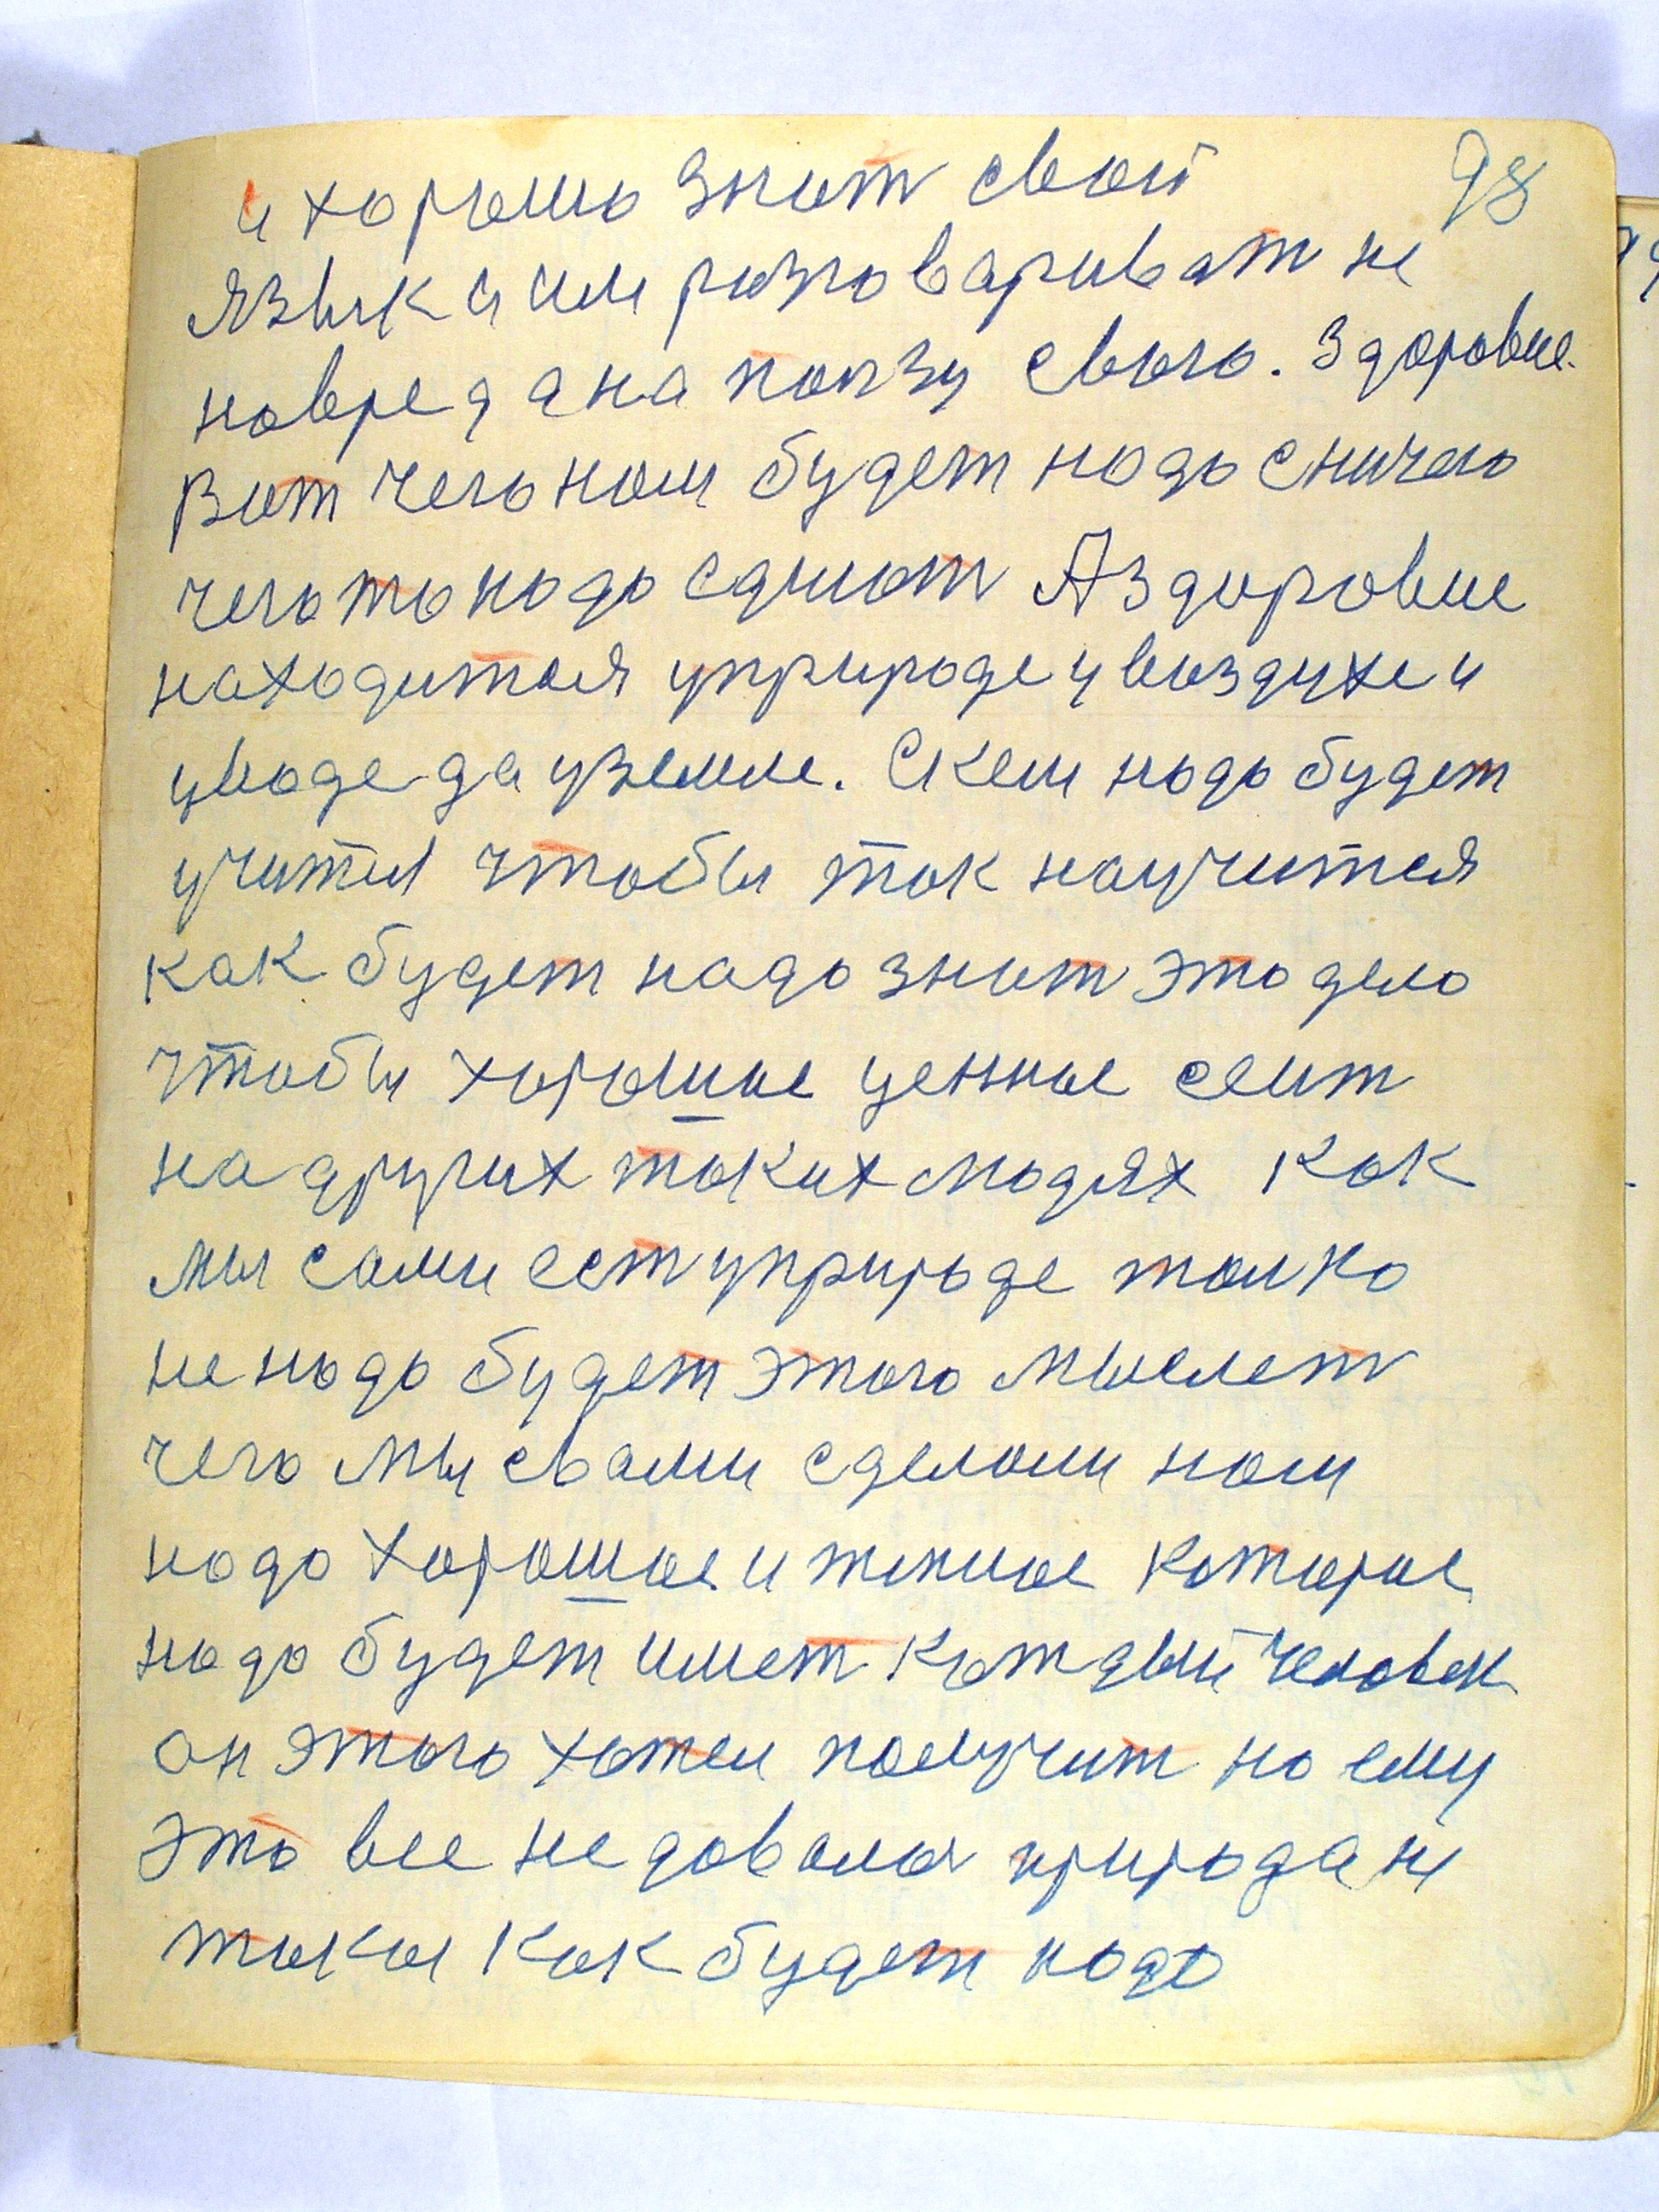 98
и хорошо знат свой
язык и им разговариват не
навред а на ползу свого. Здоровие.
Вот чего нам будет надо сничего
чегото надо сдиют А здоровие
находится уприроде у воздухе и
уводе да уземле. Скем надо будет
учится чтобы так научится
как будет надо знат это дело
чтобы хорошое ценное
на других таких людях как
мы сами ест уприроде толко
не надо будет этого мыслет
чего мы свами сделали нам
надо хорошое и тжное которые
надо будет имет каждый человек
он этого хотел получит но ему
это все не довала природа не
така как будет надо